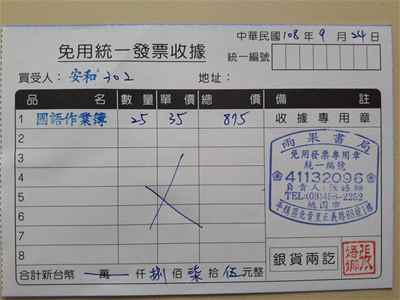 中華民國108年9月24日
免用統一發票收據
統一編號
買受人：安和302 地址：
品名 數量 單價 總價 備註
1 國語作業簿 25 35 875 收據專用章
2
3
4
5
6
7
8
雨果書局
免用發票專用章
統一編號
41132096
負責人：
TEL:
桃園市
銀貨兩訖
合計新台幣 萬 仟 捌佰柒拾伍元整